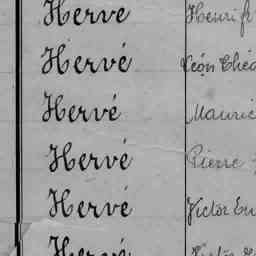 Hervé Henri
Hervé Léon Théo
Hervé Mauric
Hervé Pierre
Hervé Victor Eu
Hervé Victor